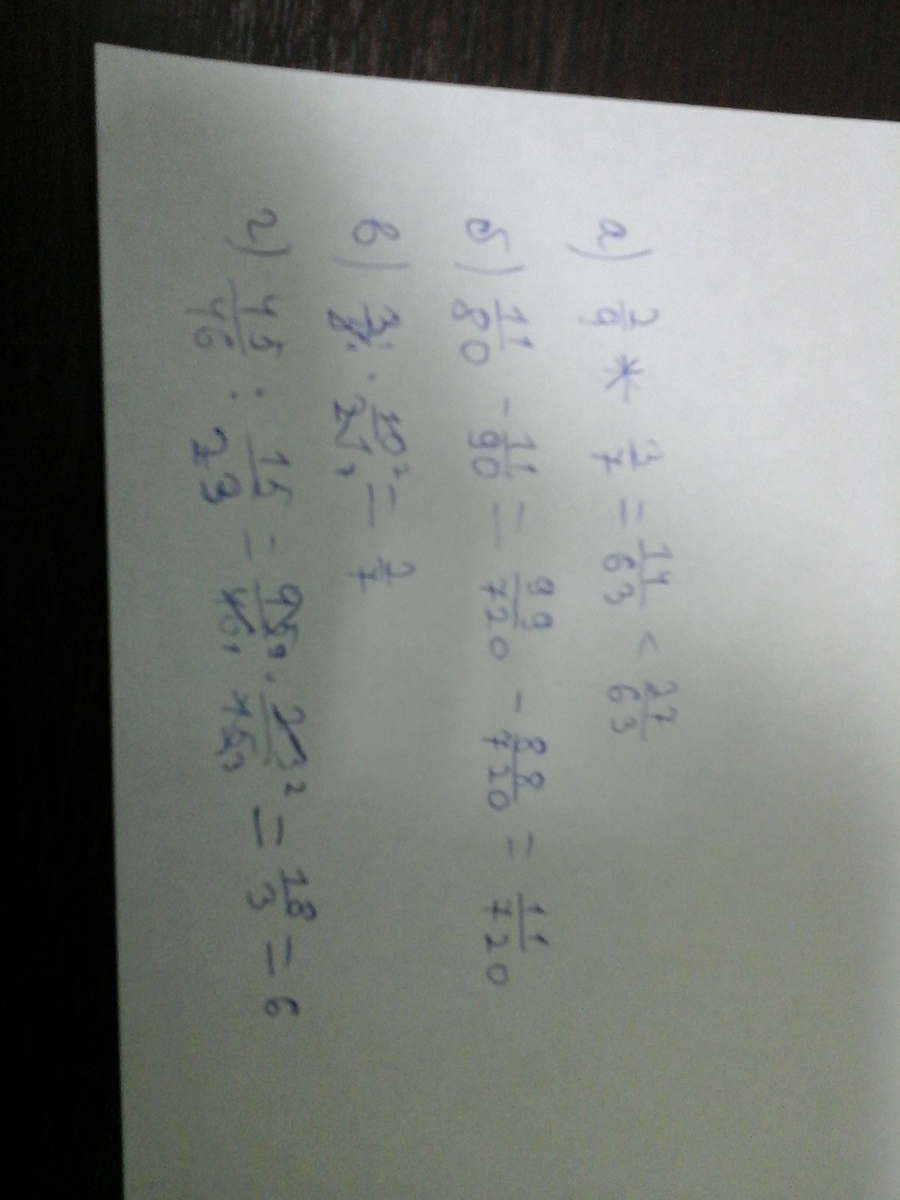 а) 2/9 * 3/7 = 14/63 < 27/63
б) 11/80 - 11/90 = 99/720 - 88/720 = 11/720
в) 3/8 · 10/21 = 2/7
г) 45/46 : 15/23 = 18/3 = 6